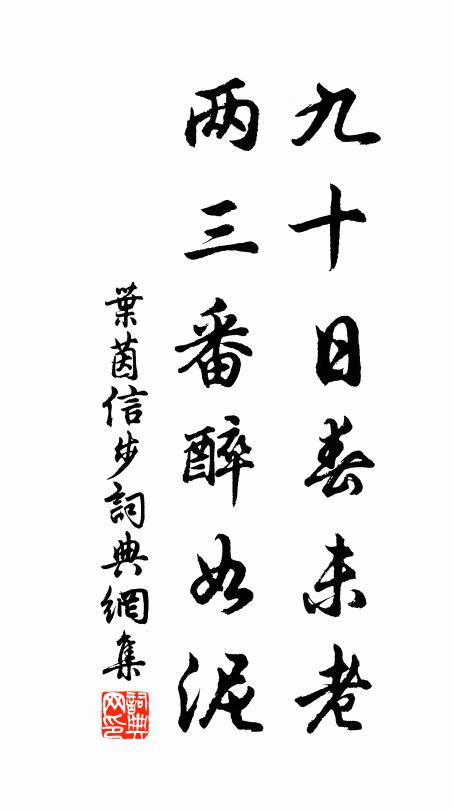 九十日春未老
两三番醉如泥
葉茵信步詞典網集
詞典
网印